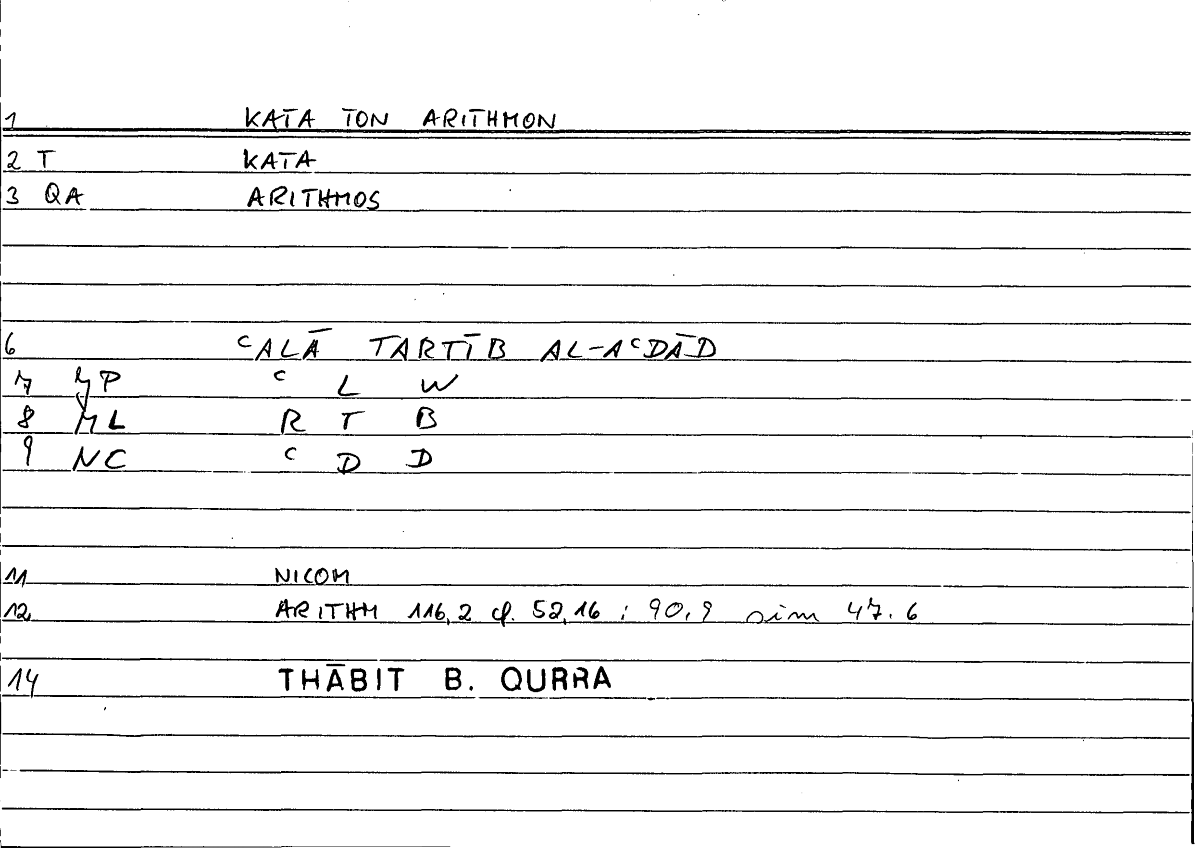 1 KATA TON ARITHMON
2 T KATA
3 QA ARITHMOS
6 ᶜALĀ TARTĪB AL-AᶜDĀD
7 P ᶜ L W
8 ML R T B
9 NC ᶜ D D
11 NICOM
12 ARITHM 116,2 cf. 52,16 ; 90,9 sim 47.6
14 THĀBIT B. QURRA